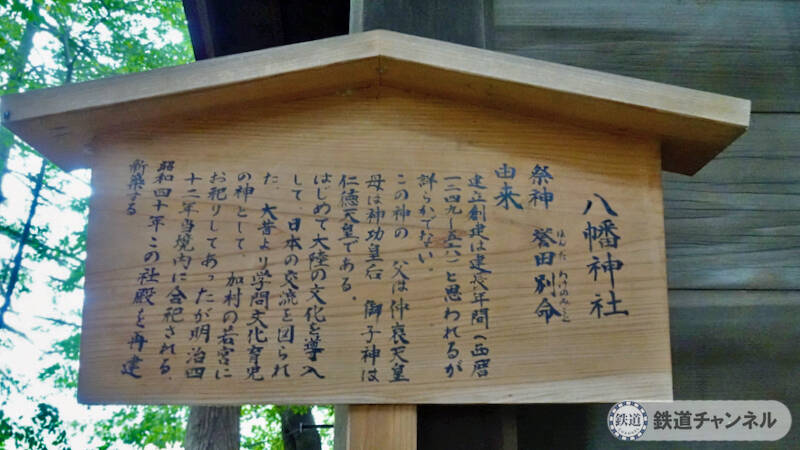 八幡神社
祭神 誉田別命
ほんだわけのみこと
由来
建立創建は建長年間(西暦
一二四九〜五六)と思われるが
詳らかでない。
この神の 父は仲哀天皇
母は神功皇后 御子神は
仁徳天皇である。
はじめて大陸の文化を導入
して 日本の交流を図られ
た。 大昔より学問文化育児
の神として、 加村の若宮に
お祀りしてあったが明治四
十二年当境内に合祀される。
昭和四十年この社殿を再建
新築する
鉄道
鉄道チャンネル